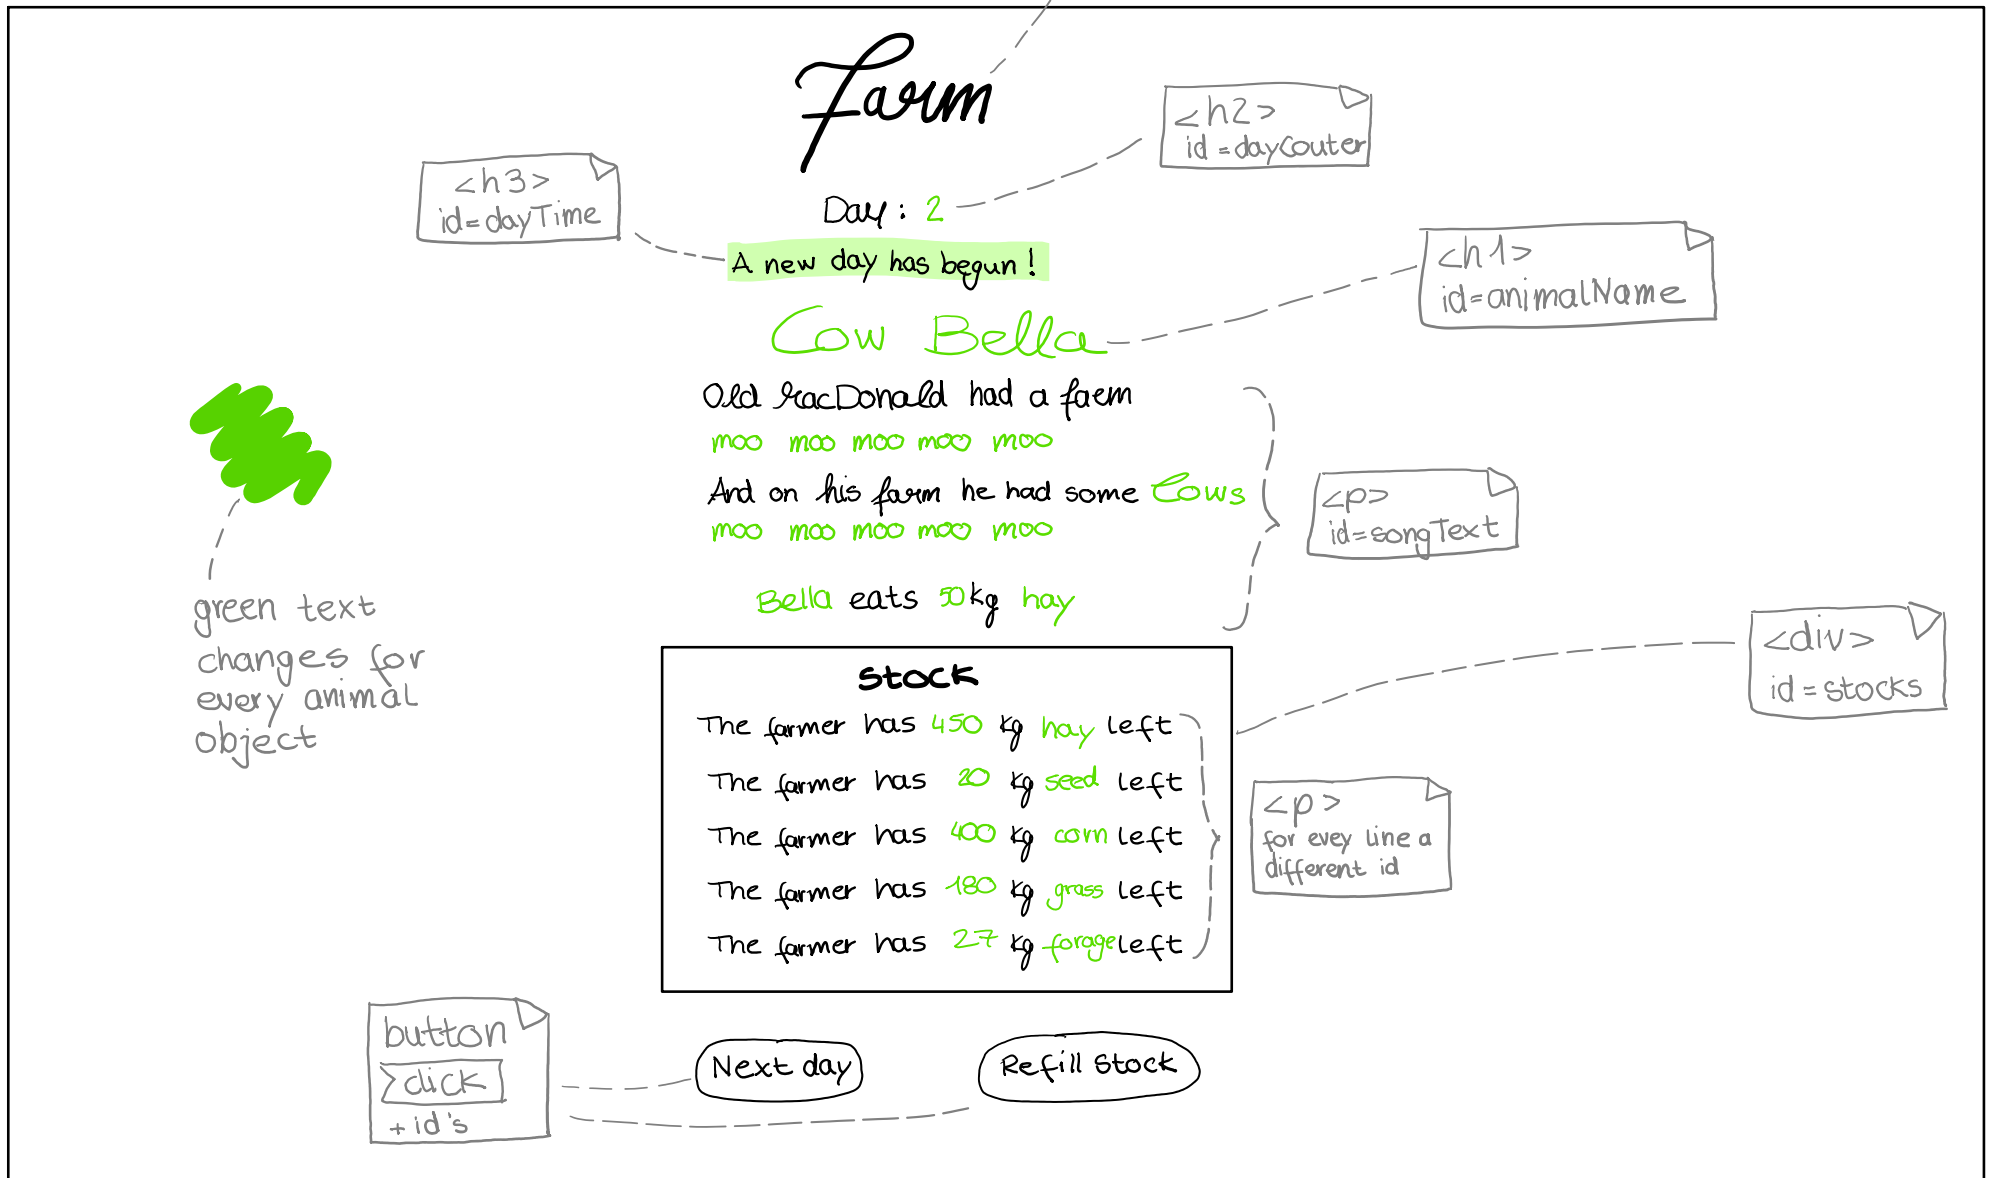 Farm
<h2>
id=dayCouter
<h3>
id=dayTime
Day: 2
A new day has begun!
<h1>
id=animalName
Cow Bella
Old MacDonald had a farm
moo moo moo moo moo
And on his farm he had some Cows
moo moo moo moo moo
<p>
id=songText
Bella eats 50kg hay
green text
changes for
every animal
object
<div>
id=stocks
Stock
The farmer has 450 kg hay left
The farmer has 20 kg seed left
The farmer has 400 kg corn left
The farmer has 180 kg grass left
The farmer has 27 kg forage left
<p>
for evey line a
different id
button
click
+id's
Next day
Refill Stock